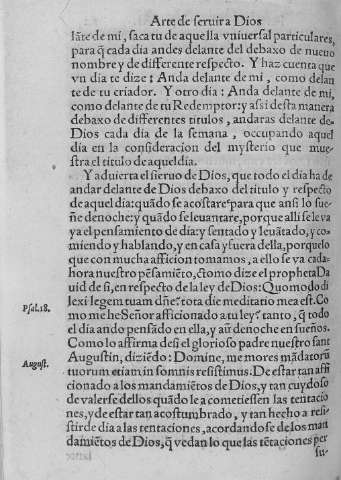 Arte de seruir a Dios
lãte de mi, saca tu de aquella vniuersal particulares,
para q̃ cada dia andes delante del debaxo de nueuo
nombre y de differente respecto. Y haz cuenta que
vn dia te dize: Anda delante de mi, como delan
te de tu criador. Y otro dia: Anda delante de mi,
como delante de tu Redemptor: y assi desta manera
debaxo de differentes titulos, andaras delante de
Dios cada dia de la semana, occupando aquel
dia en la consideracion del mysterio que mue-
stra el titulo de aquel dia.
Y aduierta el sieruo de Dios, que todo el dia ha de
andar delante de Dios debaxo del titulo y respecto
de aquel dia: quãdo se acostare para que ansi lo sue
ñe de noche: y quãdo se leuantare, porque alli se le va
ya el pensamiento de dia: y sentado y leuãtado, y co
miendo y hablando, y en casa y fuera della, porque lo
que con mucha afficion tomamos, a ello se va cada
hora nuestro pẽsamiẽto, como dize el propheta Da
uid de si, en respecto de la ley de Dios: Quomodo di
lexi legem tuam dñe? tota die meditatio mea est. Co
mo me he Señor afficionado a tu ley? tanto, q̃ todo
el dia ando pensãdo en ella, y aũ de noche en sueños.
Psal. 18.
Como lo affirma de si el glorioso padre nuestro sant
Augustin, diziẽdo: Domine, me mores mãdatorũ
August.
tuorum etiam in somnis resistimus. De estar tan affi
cionado a los mandamiẽtos de Dios, y tan cuydoso
de valerse dellos quãdo le acometiessen las tentacio
nes, y de estar tan acostumbrado, y tan hecho a resi
stir de dia a las tentaciones, acordandose de los man
damiẽtos de Dios, q̃ vedan lo que las tẽtaciones per
su-